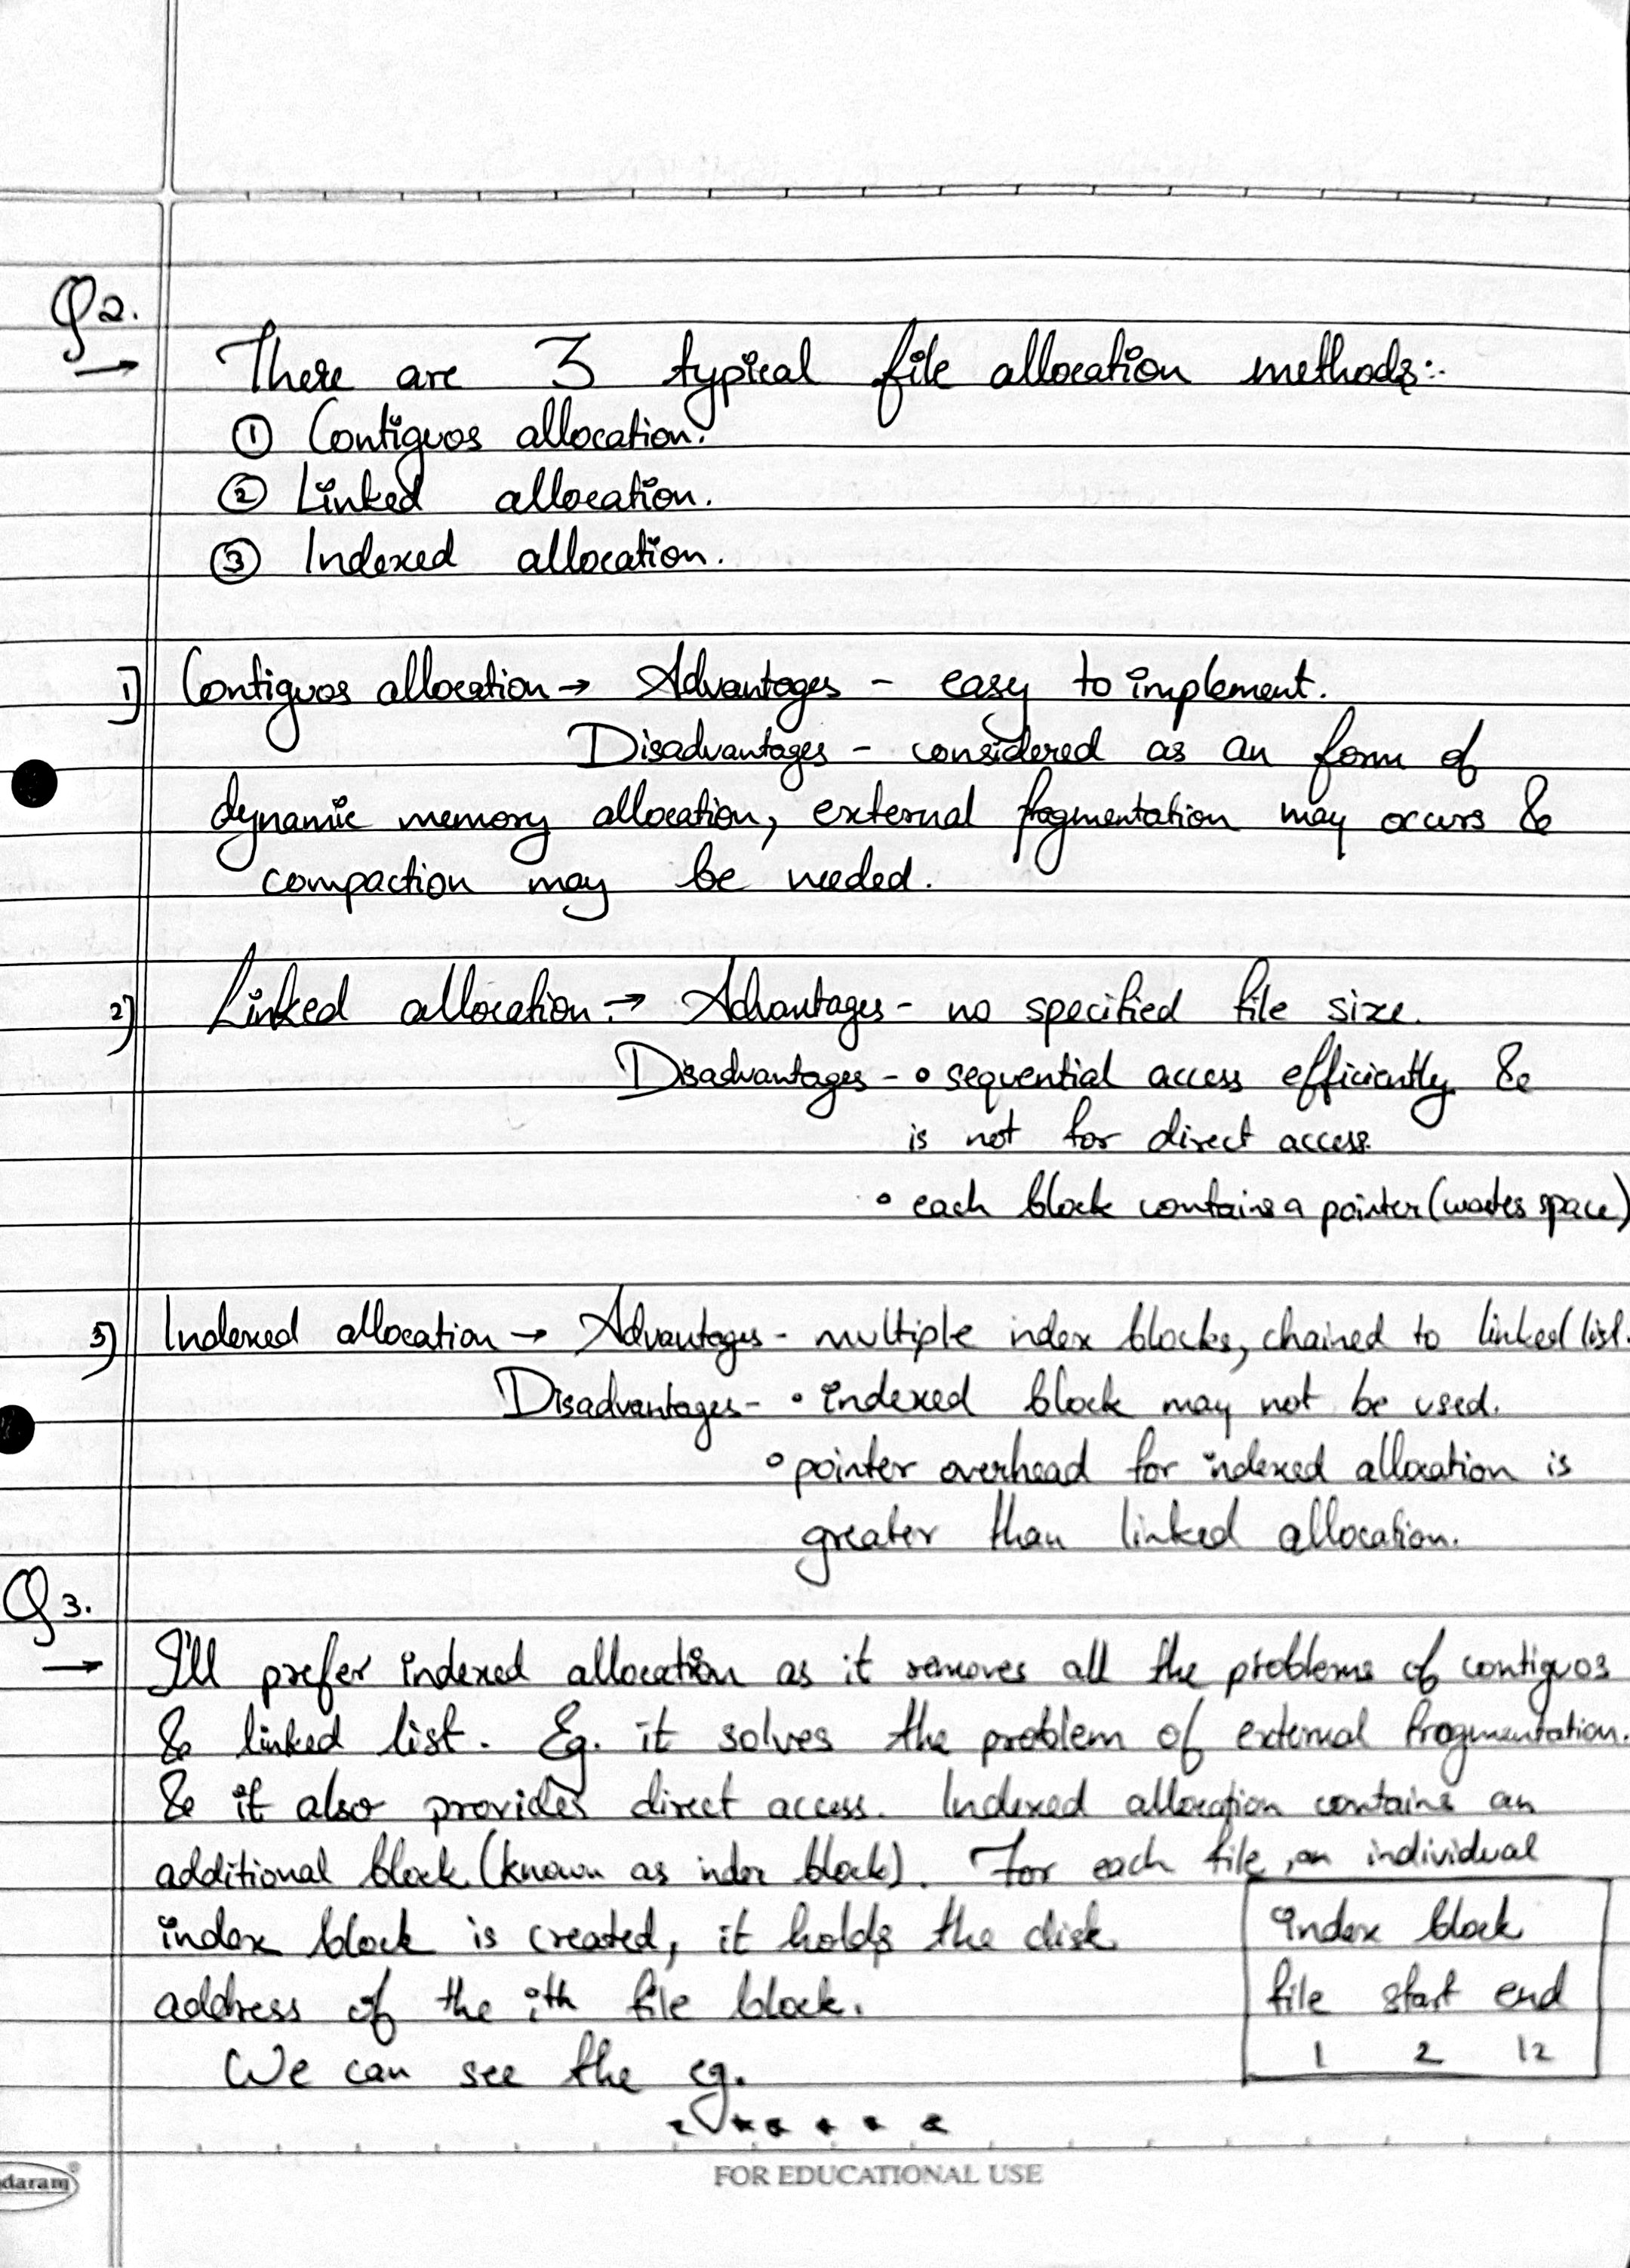 Q2.
→ There are 3 typical file allocation methods:-
① Contiguos allocation.
② Linked allocation.
③ Indexed allocation.
1] Contiguos allocation → Advantages - easy to implement.
Disadvantages - considered as an form of
dynamic memory allocation, external fragmentation may occurs &
compaction may be needed.
2) Linked allocation. → Advantages - no specified file size.
Disadvantages - • sequential access efficiently &
is not for direct access.
• each block contains a pointer (wastes space)
3) Indexed allocation → Advantages - multiple index blocks, chained to linked list.
Disadvantages - • indexed block may not be used.
• pointer overhead for indexed allocation is
greater than linked allocation.
Q3.
→ I'll prefer indexed allocation as it removes all the problems of contiguos
& linked list. Eg. it solves the problem of external fragmentation.
& it also provides direct access. Indexed allocation contains an
additional block (known as index block). For each file, an individual
index block is created, it holds the disk
address of the ith file block.
We can see the eg.
index block
file start end
1 2 12
daram
FOR EDUCATIONAL USE